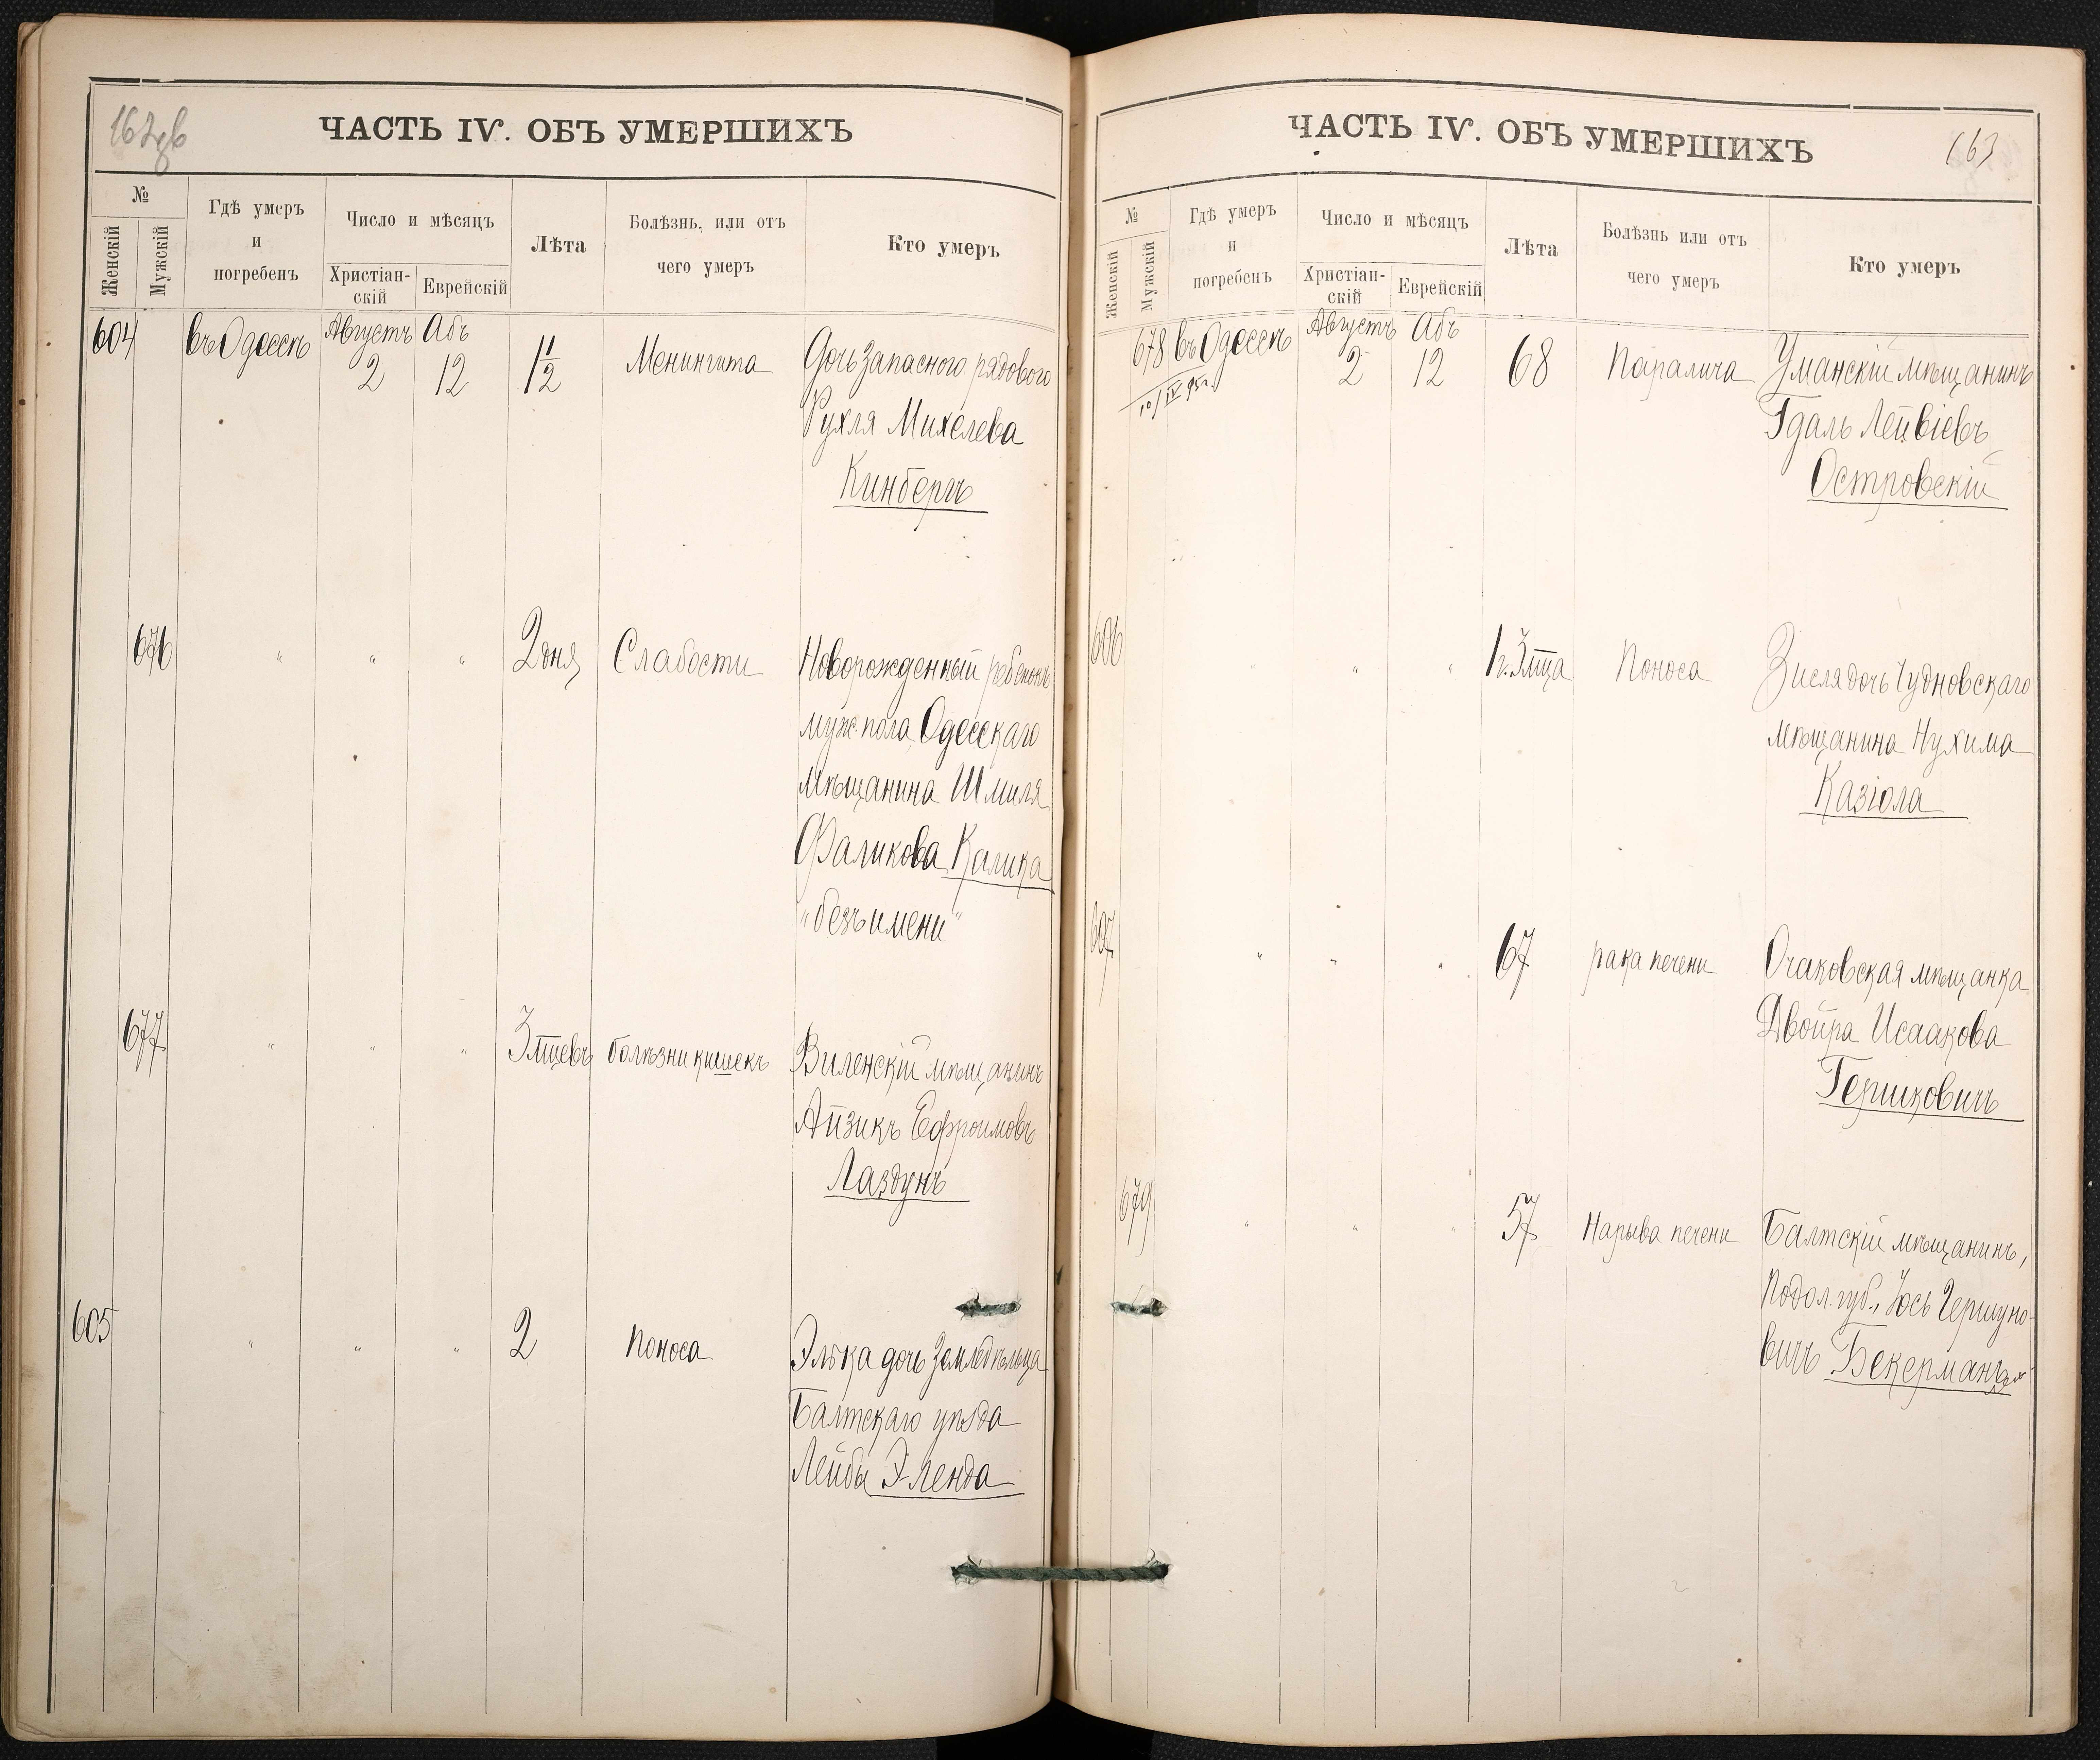 ЧАСТЬ IV. ОБЪ УМЕРШИХЪ
№
Женскій
Мужскій
Гдѣ умеръ
и
погребенъ
Число и мѣсяцъ
Христіан-
скій
Еврейскій
Лѣта
Болѣзнь, или отъ
чего умеръ
Кто умеръ
604 въ Одессѣ Августъ 2 Абъ 12 1 1/2 Менингита Дочь запасного рядового
Рухля Михелева
Кинбергъ
676 " " " 2 дня Слабости Новорожденный ребенокъ
муж. пола, Одесскаго
мѣщанина Шмиля
Фаликова Калика
"безъ имени"
677 " " " 3 мцевъ болѣзни кишекъ Виленскій мѣщанинъ
Айзикъ Ефроимовъ
Лаздунъ
605 " " " 2 Поноса Элька дочь Землѣдѣльца
Балтскаго уѣзда
Лейбы Эленда
ЧАСТЬ IV. ОБЪ УМЕРШИХЪ
163
№
Женскій
Мужскій
Гдѣ умеръ
и
погребенъ
Число и мѣсяцъ
Христіан-
скій
Еврейскій
Лѣта
Болѣзнь или отъ
чего умеръ
Кто умеръ
678 въ Одессѣ Августъ 2 Абъ 12 68 Паралича Уманскій мѣщанинъ
10/IV 95 г.
Гдаль Лейвіевъ
Островскій
606 " " " 1 г. 3 мца Поноса Зисля дочь Чудновскаго
мѣщанина Нухима
Казіола
607 " " " 67 рака печени Очаковская мѣщанка
Двойра Исаакова
Гершковичъ
679 " " " 57 Нарыва печени Балтскій мѣщанинъ,
Подол. губ., Іось Гершуно-
вичъ Бекерманъ